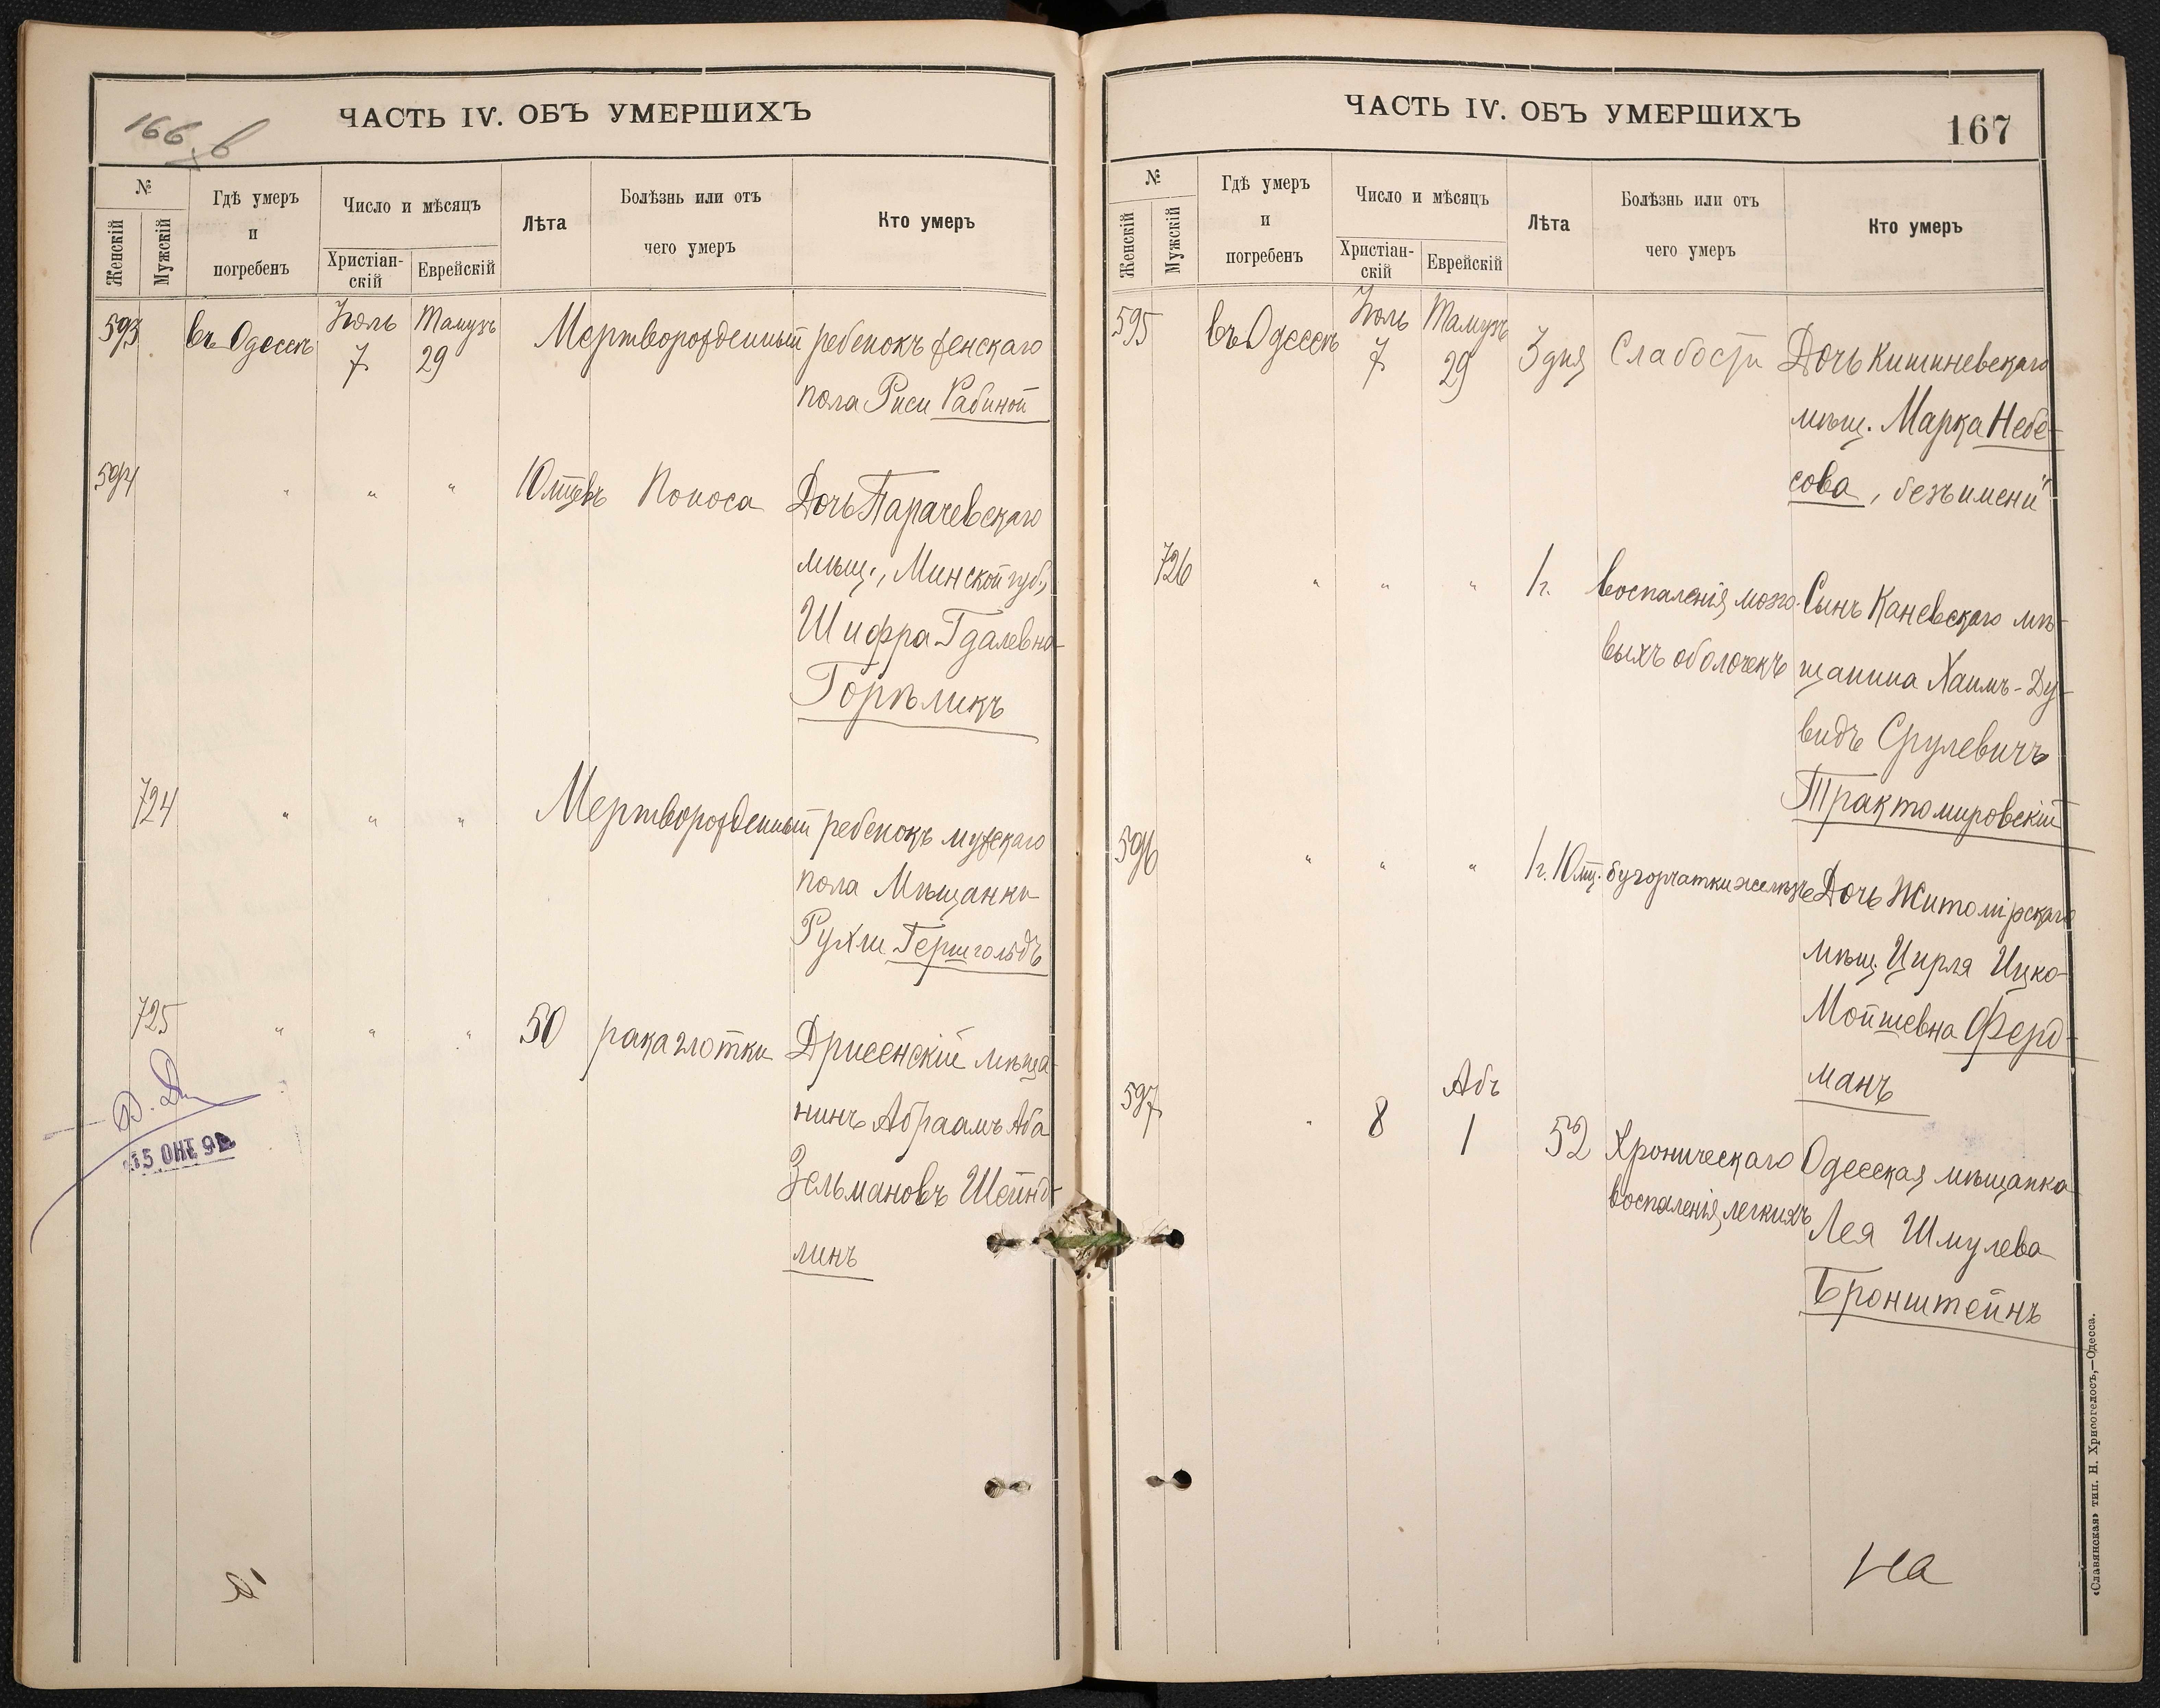 166 в
ЧАСТЬ IV. ОБЪ УМЕРШИХЪ
№
Женскій
Мужскій
Гдѣ умеръ
и
погребенъ
Число и мѣсяцъ
Христіан-
скій
Еврейскій
Лѣта
Болѣзнь или отъ
чего умеръ
Кто умеръ
593 въ Одессѣ Іюль 7 Тамузъ 29 Мертворожденный ребенокъ женскаго
пола Риси Рабиной
594 " " " 10 мцевъ Поноса Дочь Паричевскаго
мѣщ., Минской губ.,
Шифра Гдалевна
Горѣликъ
724 " " " Мертворожденный ребенокъ мужскаго
пола Мѣщанки
Рухли Гершгольдъ
725 " " " 50 рака глотки Дрисенскій мѣща-
нинъ Абраамъ Аба
Зельмановъ Шейнд-
линъ
15 ОКТ 9
ЧАСТЬ IV. ОБЪ УМЕРШИХЪ
167
№
Женскій
Мужскій
Гдѣ умеръ
и
погребенъ
Число и мѣсяцъ
Христіан-
скій
Еврейскій
Лѣта
Болѣзнь или отъ
чего умеръ
Кто умеръ
595 въ Одессѣ Іюль 7 Тамузъ 29 3 дня Слабости Дочь Кишиневскаго
мѣщ. Марка Небе-
сова, "безъ имени"
726 " " " 1 г. воспаленія мозго- Сынъ Каневскаго мѣ-
выхъ оболочекъ щанина Хаимъ-Ду-
видъ Срулевичъ
Трактомировскій
596 " " " 1 г. 10 мц. бугорчатки железъ Дочь Житомірскаго
мѣщ. Цирля Ицко-
Мойшевна Ферд-
манъ
597 " 8 Абъ 1 52 Хроническаго Одесская мѣщанка
воспаленія легкихъ Лея Шмулева
Бронштейнъ
На
«Славянская» тип. Н. Хрисогелосъ,—Одесса.